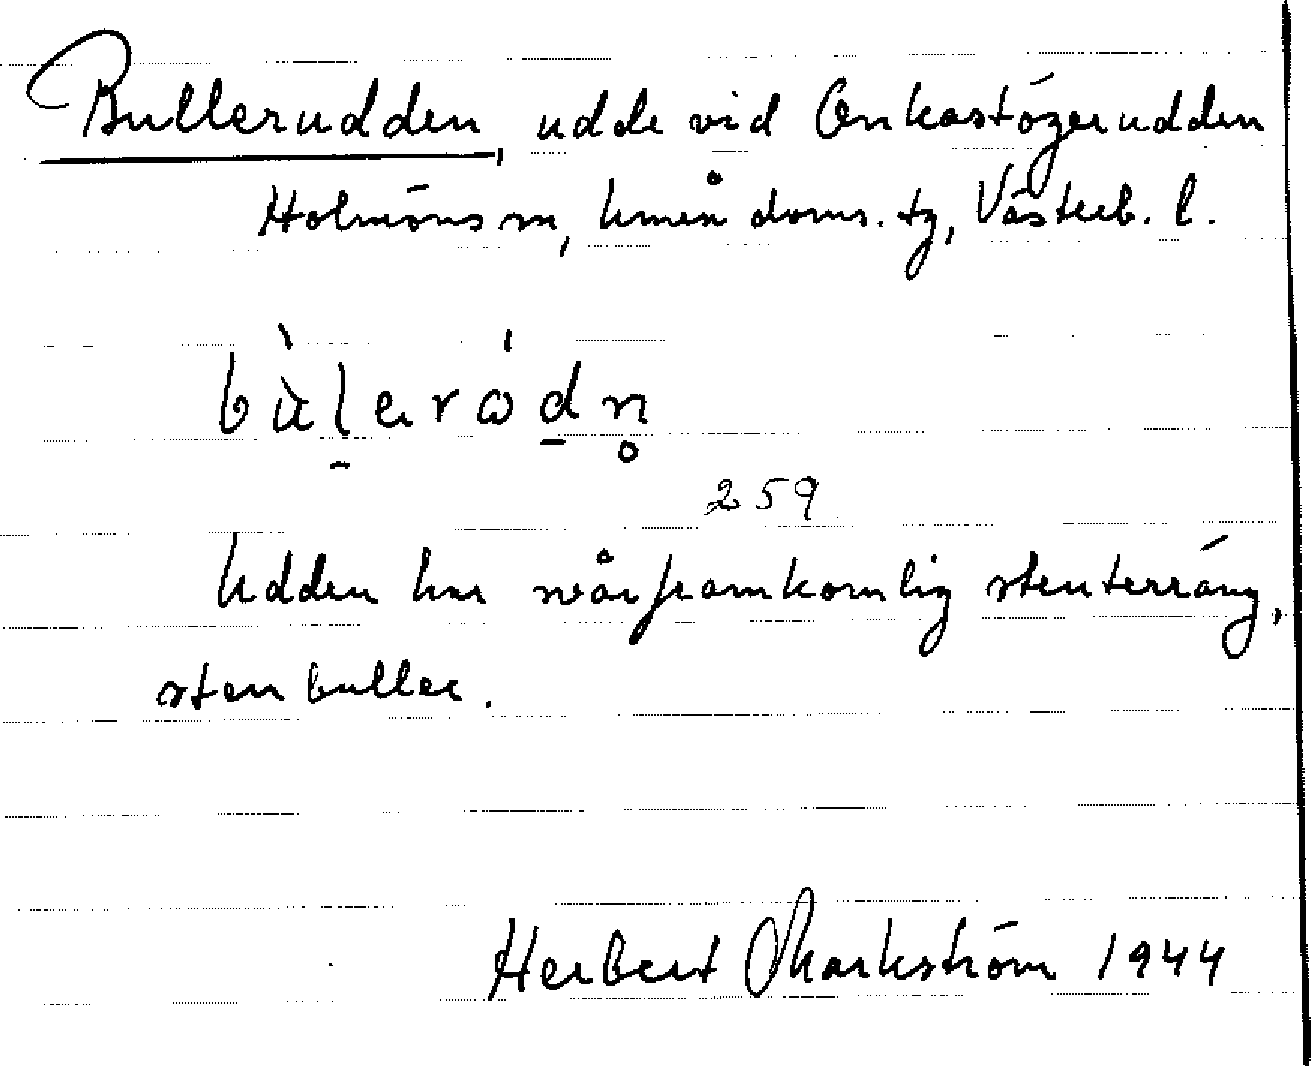 Bullerudden, udde vid Önkastögerudden
Holmöns sn, Umeå doms. tg, Västerb. l.
bùleródn̥
259
Udden har svårframkomlig stenterräng,
stenbuller.
Herbert Markström 1944